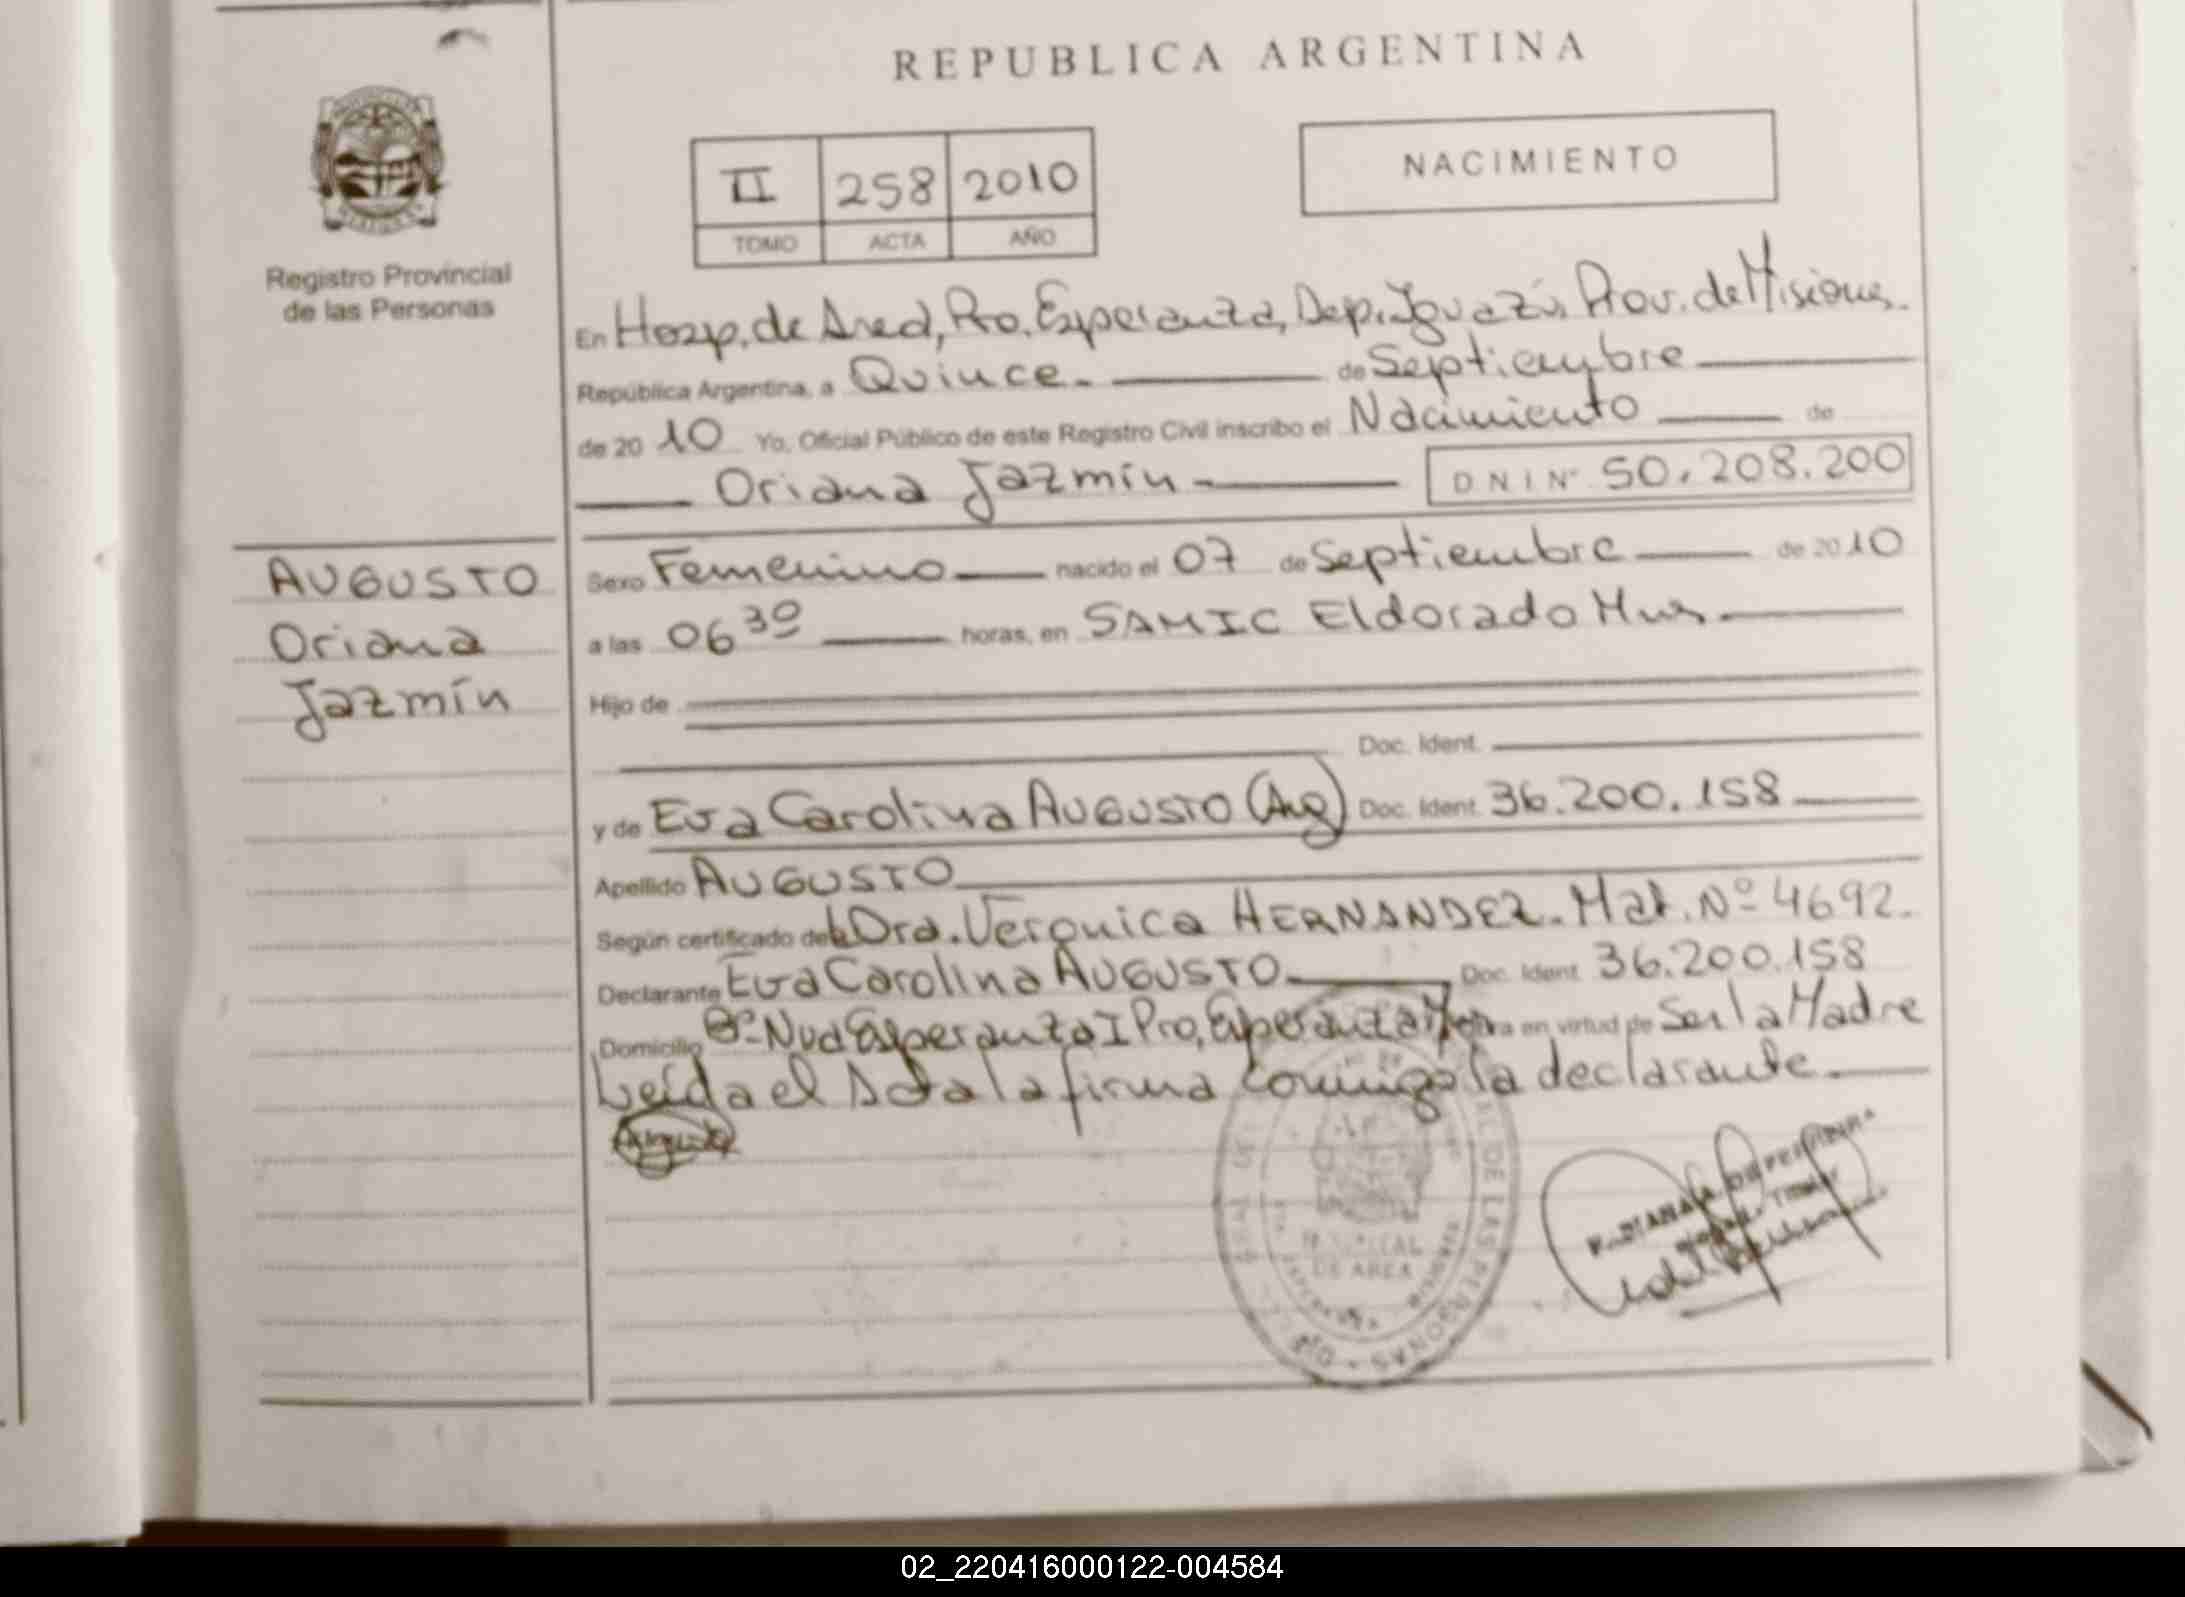 REPUBLICA ARGENTINA
II 258 2010
TOMO ACTA AÑO
NACIMIENTO
Registro Provincial
de las Personas
En Hosp. de Area, Pto. Esperanza, Dep. Iguazú, Prov. de Misiones.
República Argentina, a Quince.- de Septiembre
de 20 10 Yo, Oficial Público de este Registro Civil inscribo el Nacimiento de
Oriana Jazmín.- D N I Nº 50.208.200
AUGUSTO
Oriana
Jazmín
Sexo Femenino nacido el 07 de Septiembre de 20 10
a las 06 30 horas, en SAMIC Eldorado Mnes.
Hijo de
Doc. Ident.
y de Eva Carolina AUGUSTO (Arg) Doc. Ident. 36.200.158
Apellido AUGUSTO
Según certificado de la Dra. Veronica HERNANDEZ.- Mat. Nº 4692.-
Declarante Eva Carolina AUGUSTO Doc. Ident. 36.200.158
Domicilio Bº Nva Esperanza I Pto. Esperanza en virtud de Ser la Madre
Leída el Acta la firma conmigo la declarante.
HOSPITAL
DE AREA
DE LAS PERSONAS
02_220416000122-004584